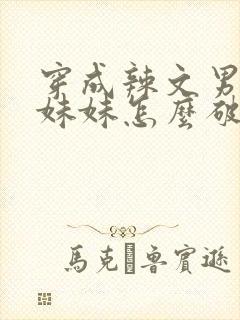 穿成辣文男
妹妹怎麼破
馬克 魯賓遜